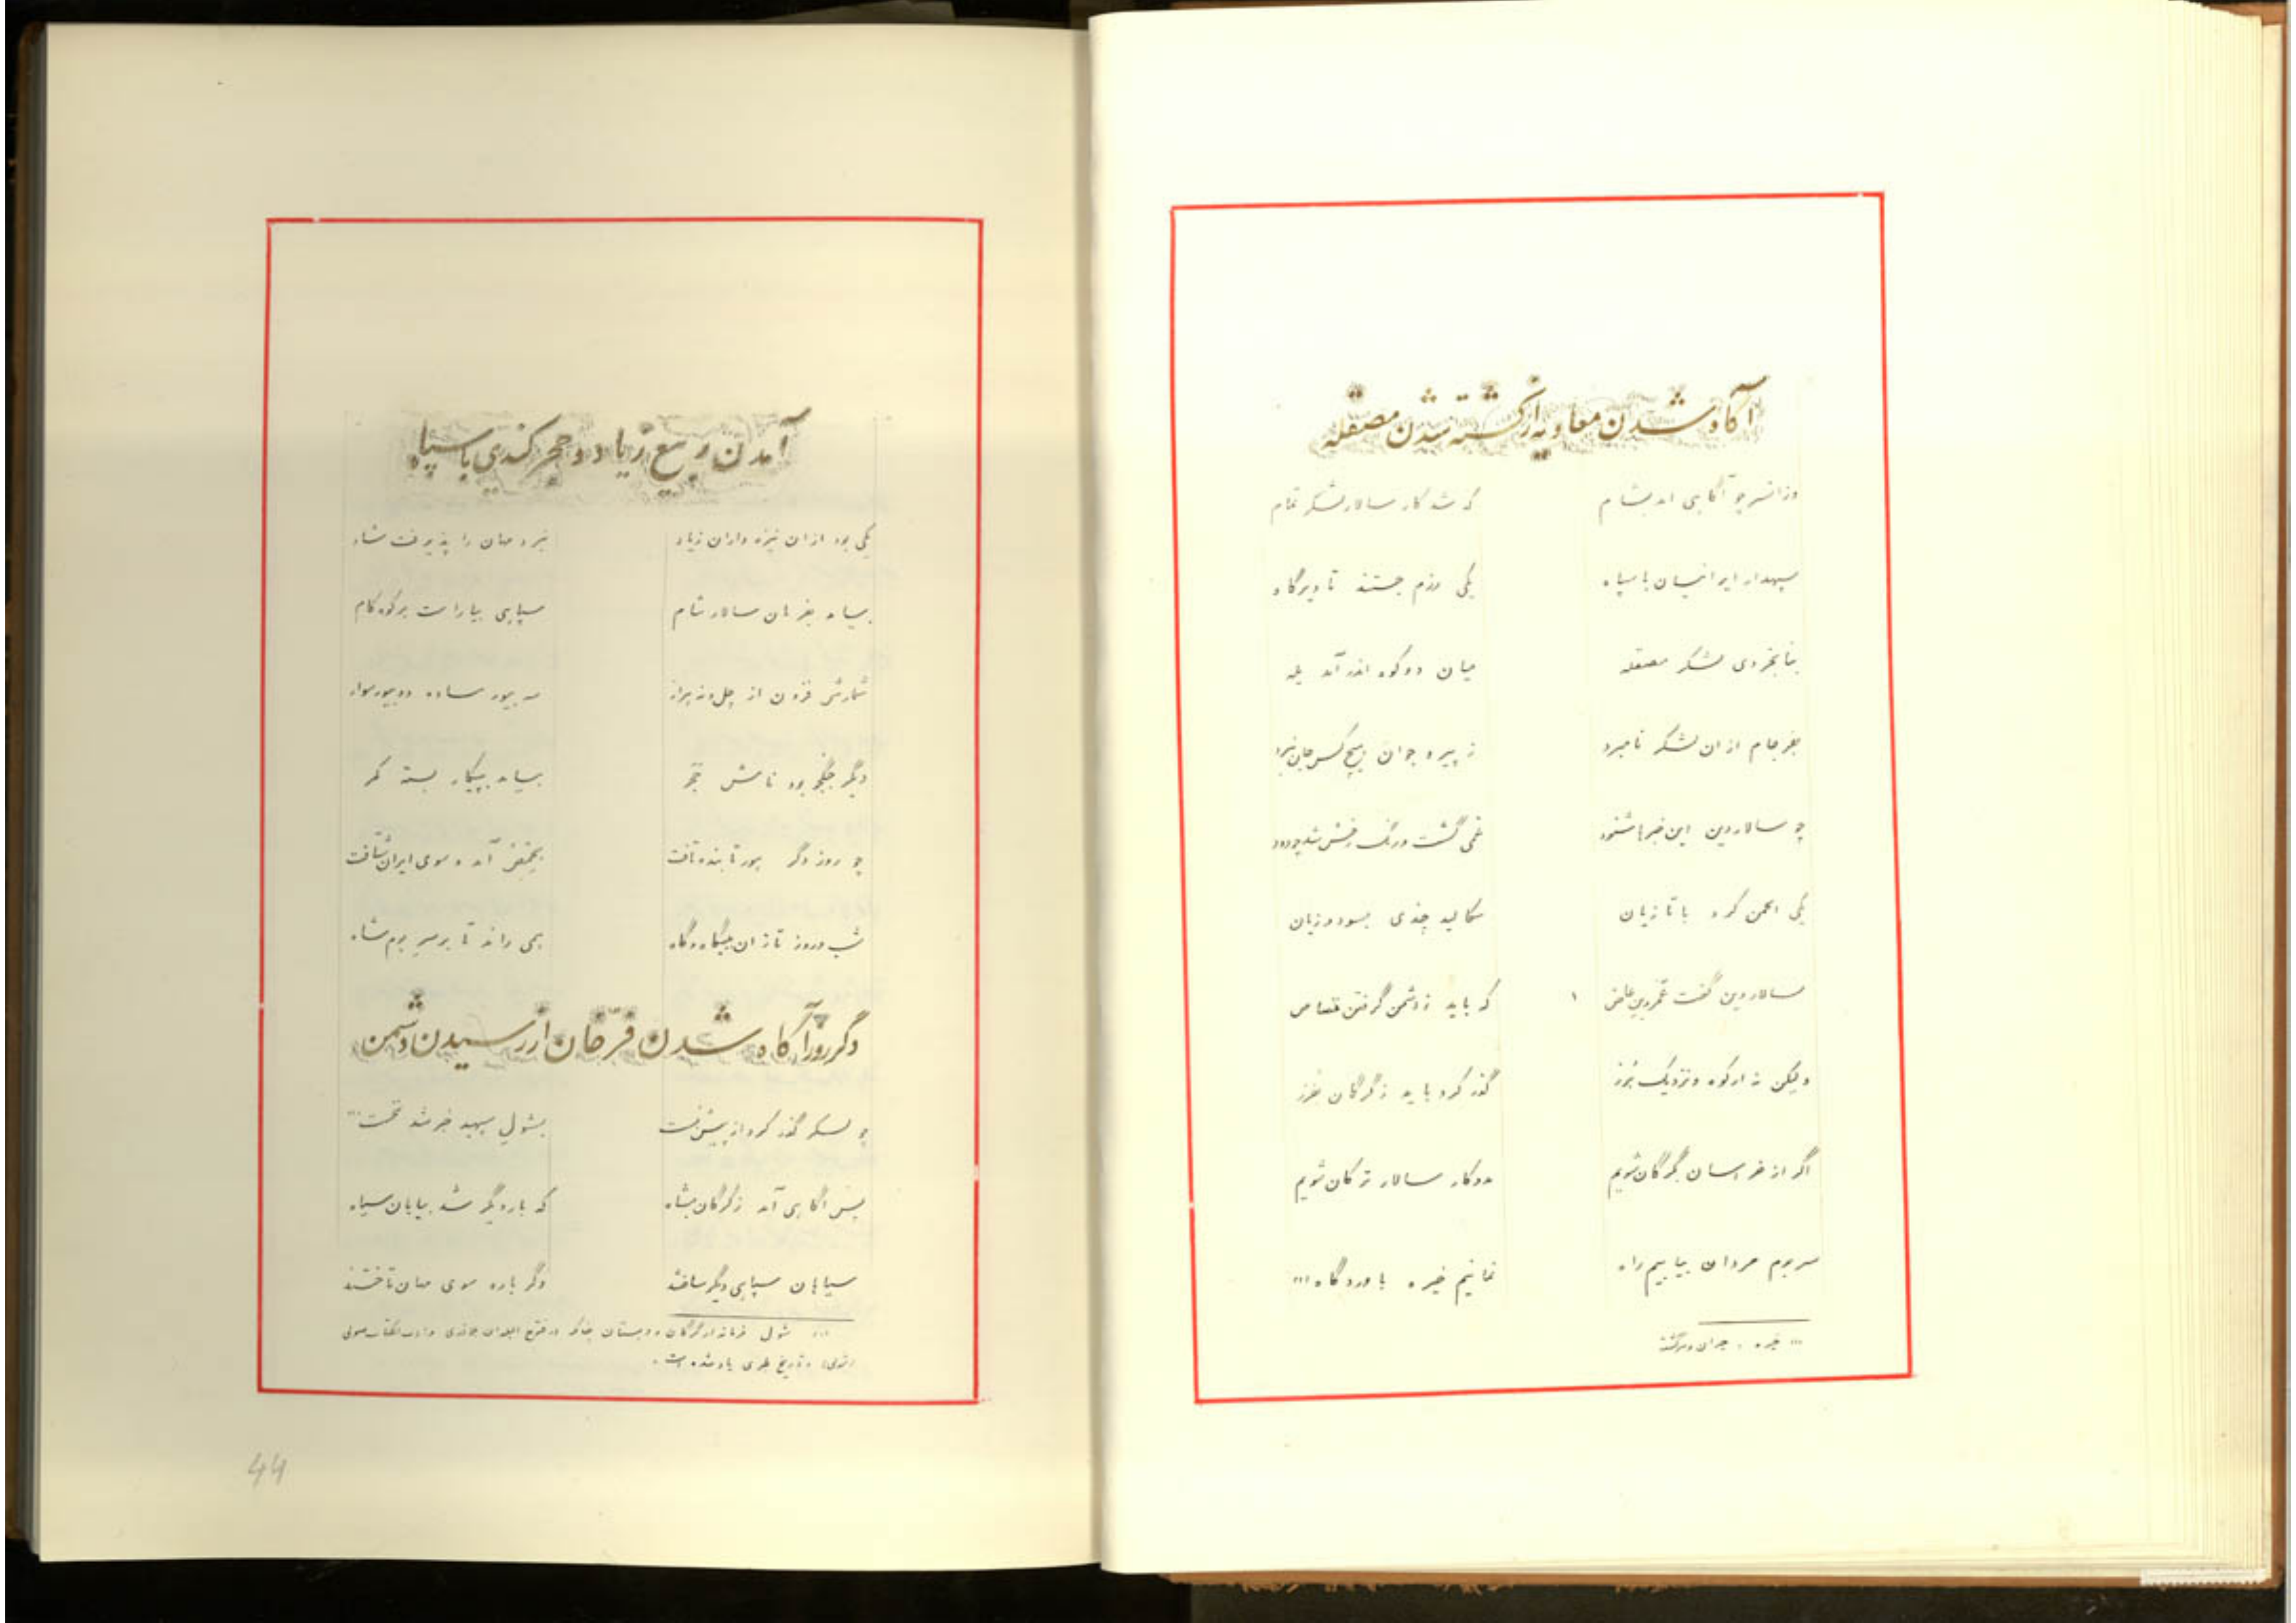 آگاه شدن معاویه از کشته شدن مصقله
وزانسر چو آگاهی امد بشام که شد کار سالار لشکر تمام
سپهدار ایرانیان با سپاه یکی رزم جستند تا دیرگاه
بنابخردی لشکر مصقله میان دو کوه اندر آمد یله
بفرجام از ان لشکر نامبرد ز پیر و جوان هیچ کس جان نبرد
چو سالار دین این خبرها شنود غمی گشت و رنگ رخش شد چو دود
یکی انجمن کرد با تازیان سگالید چندی بسود و زیان
بسالار دین گفت عمروبن عاص که باید ز دشمن گرفتن قصاص
ولیکن نه از کوه و نزدیک مرز گذر کرد باید ز گرگان بغرز
اگر از خراسان بگرگان شویم مددکار سالار ترکان شویم
سر بوم مردان بیابیم راه نمانیم خیره باوردگاه (۱)
(۱) خیره : حیران و سرگشته
آمدن ربیع زیاد و حجر کندی با سپاه
یکی بود از ان نیزه داران زیاد نبرد مهان را پذیرفت شاد
بیامد بفرمان سالار شام سپاهی بیاراست بر کوه کام
شمارش فزون از چل و نه هزار سه بیور ساده دو بیور سوار
دیگر جنگجو بود نامش حجر بیامد بپیکار بسته کمر
چو روز دگر هور تابنده تافت بجنبش آمد و سوی ایران شتافت
شب و روز تازان بیگاه و گاه همی راند تا بر سر بوم شاه
دگر روز آگاه شدن فرّخان از رسیدن دشمن
چو لشکر گذر کرد از پیش نخست بشول سپهبد خبر شد نخست (۱)
پس اگاهی آمد ز گرگان بشاه که بار دیگر شد بیابان سیاه
سپاهان سپاهی دیگر ساختند دگر باره سوی مهان تاختند
(۱) شول فرماندار گرگان و دهستان چنانکه در فتوح البلدان بلاذری و ادب الکتاب صولی
و تاریخ طبری یاد شده است .
44